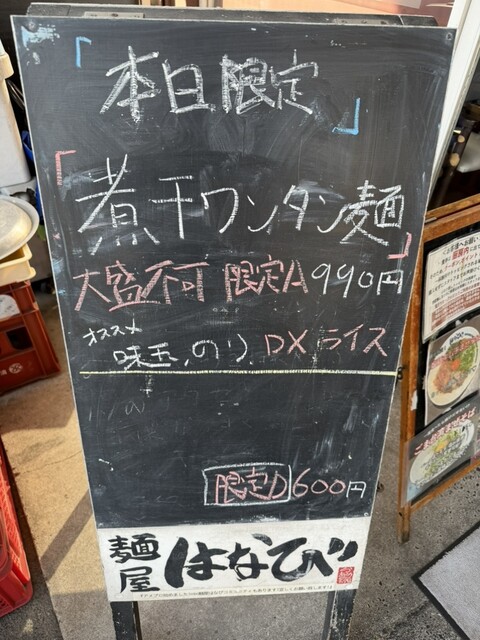 「本日限定」
「煮干ワンタン麺」
大盛不可 限定A 990円
オススメ
味玉、のり、DXライス
限定D 600円
麺屋 はなび